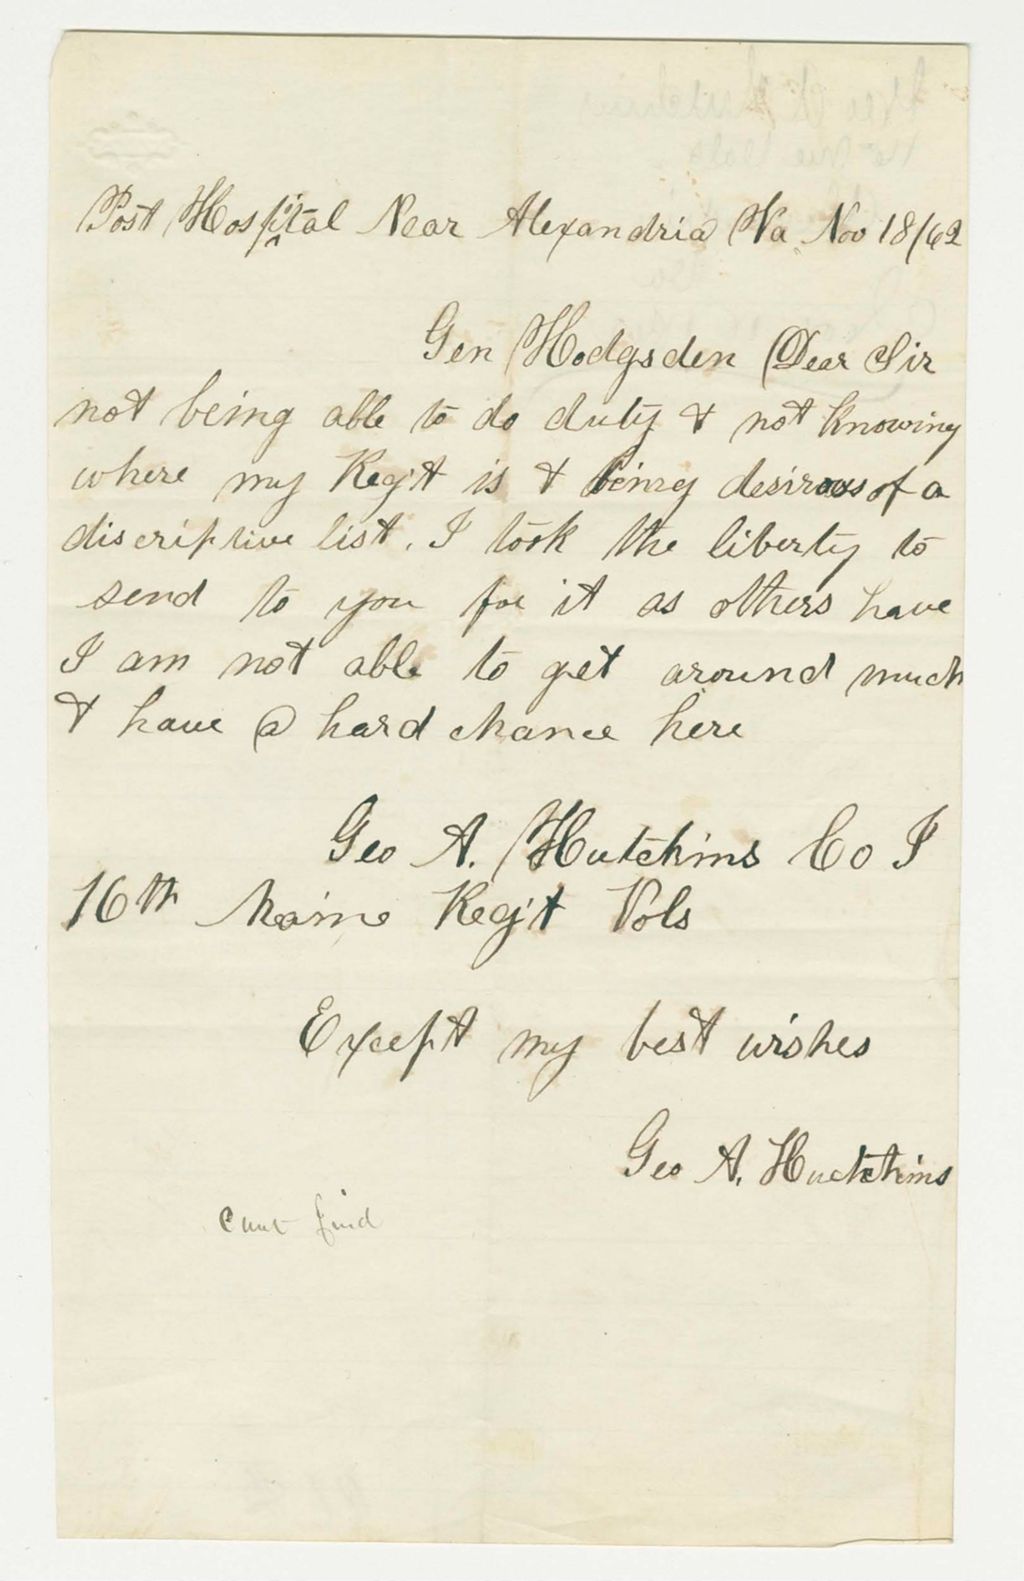 Post Hospital Near Alexandria Va Nov 18/62
Gen Hodgsden Dear Sir
not being able to do duty & not knowing
where my Regt is & being desirous of a
discriptive list. I took the liberty to
send to you for it as others have
I am not able to get around much
& have a hard chance here
Geo A. Hutchins Co I
16th Maine Regt Vols
Except my best wishes
Geo A. Hutchins
cant find